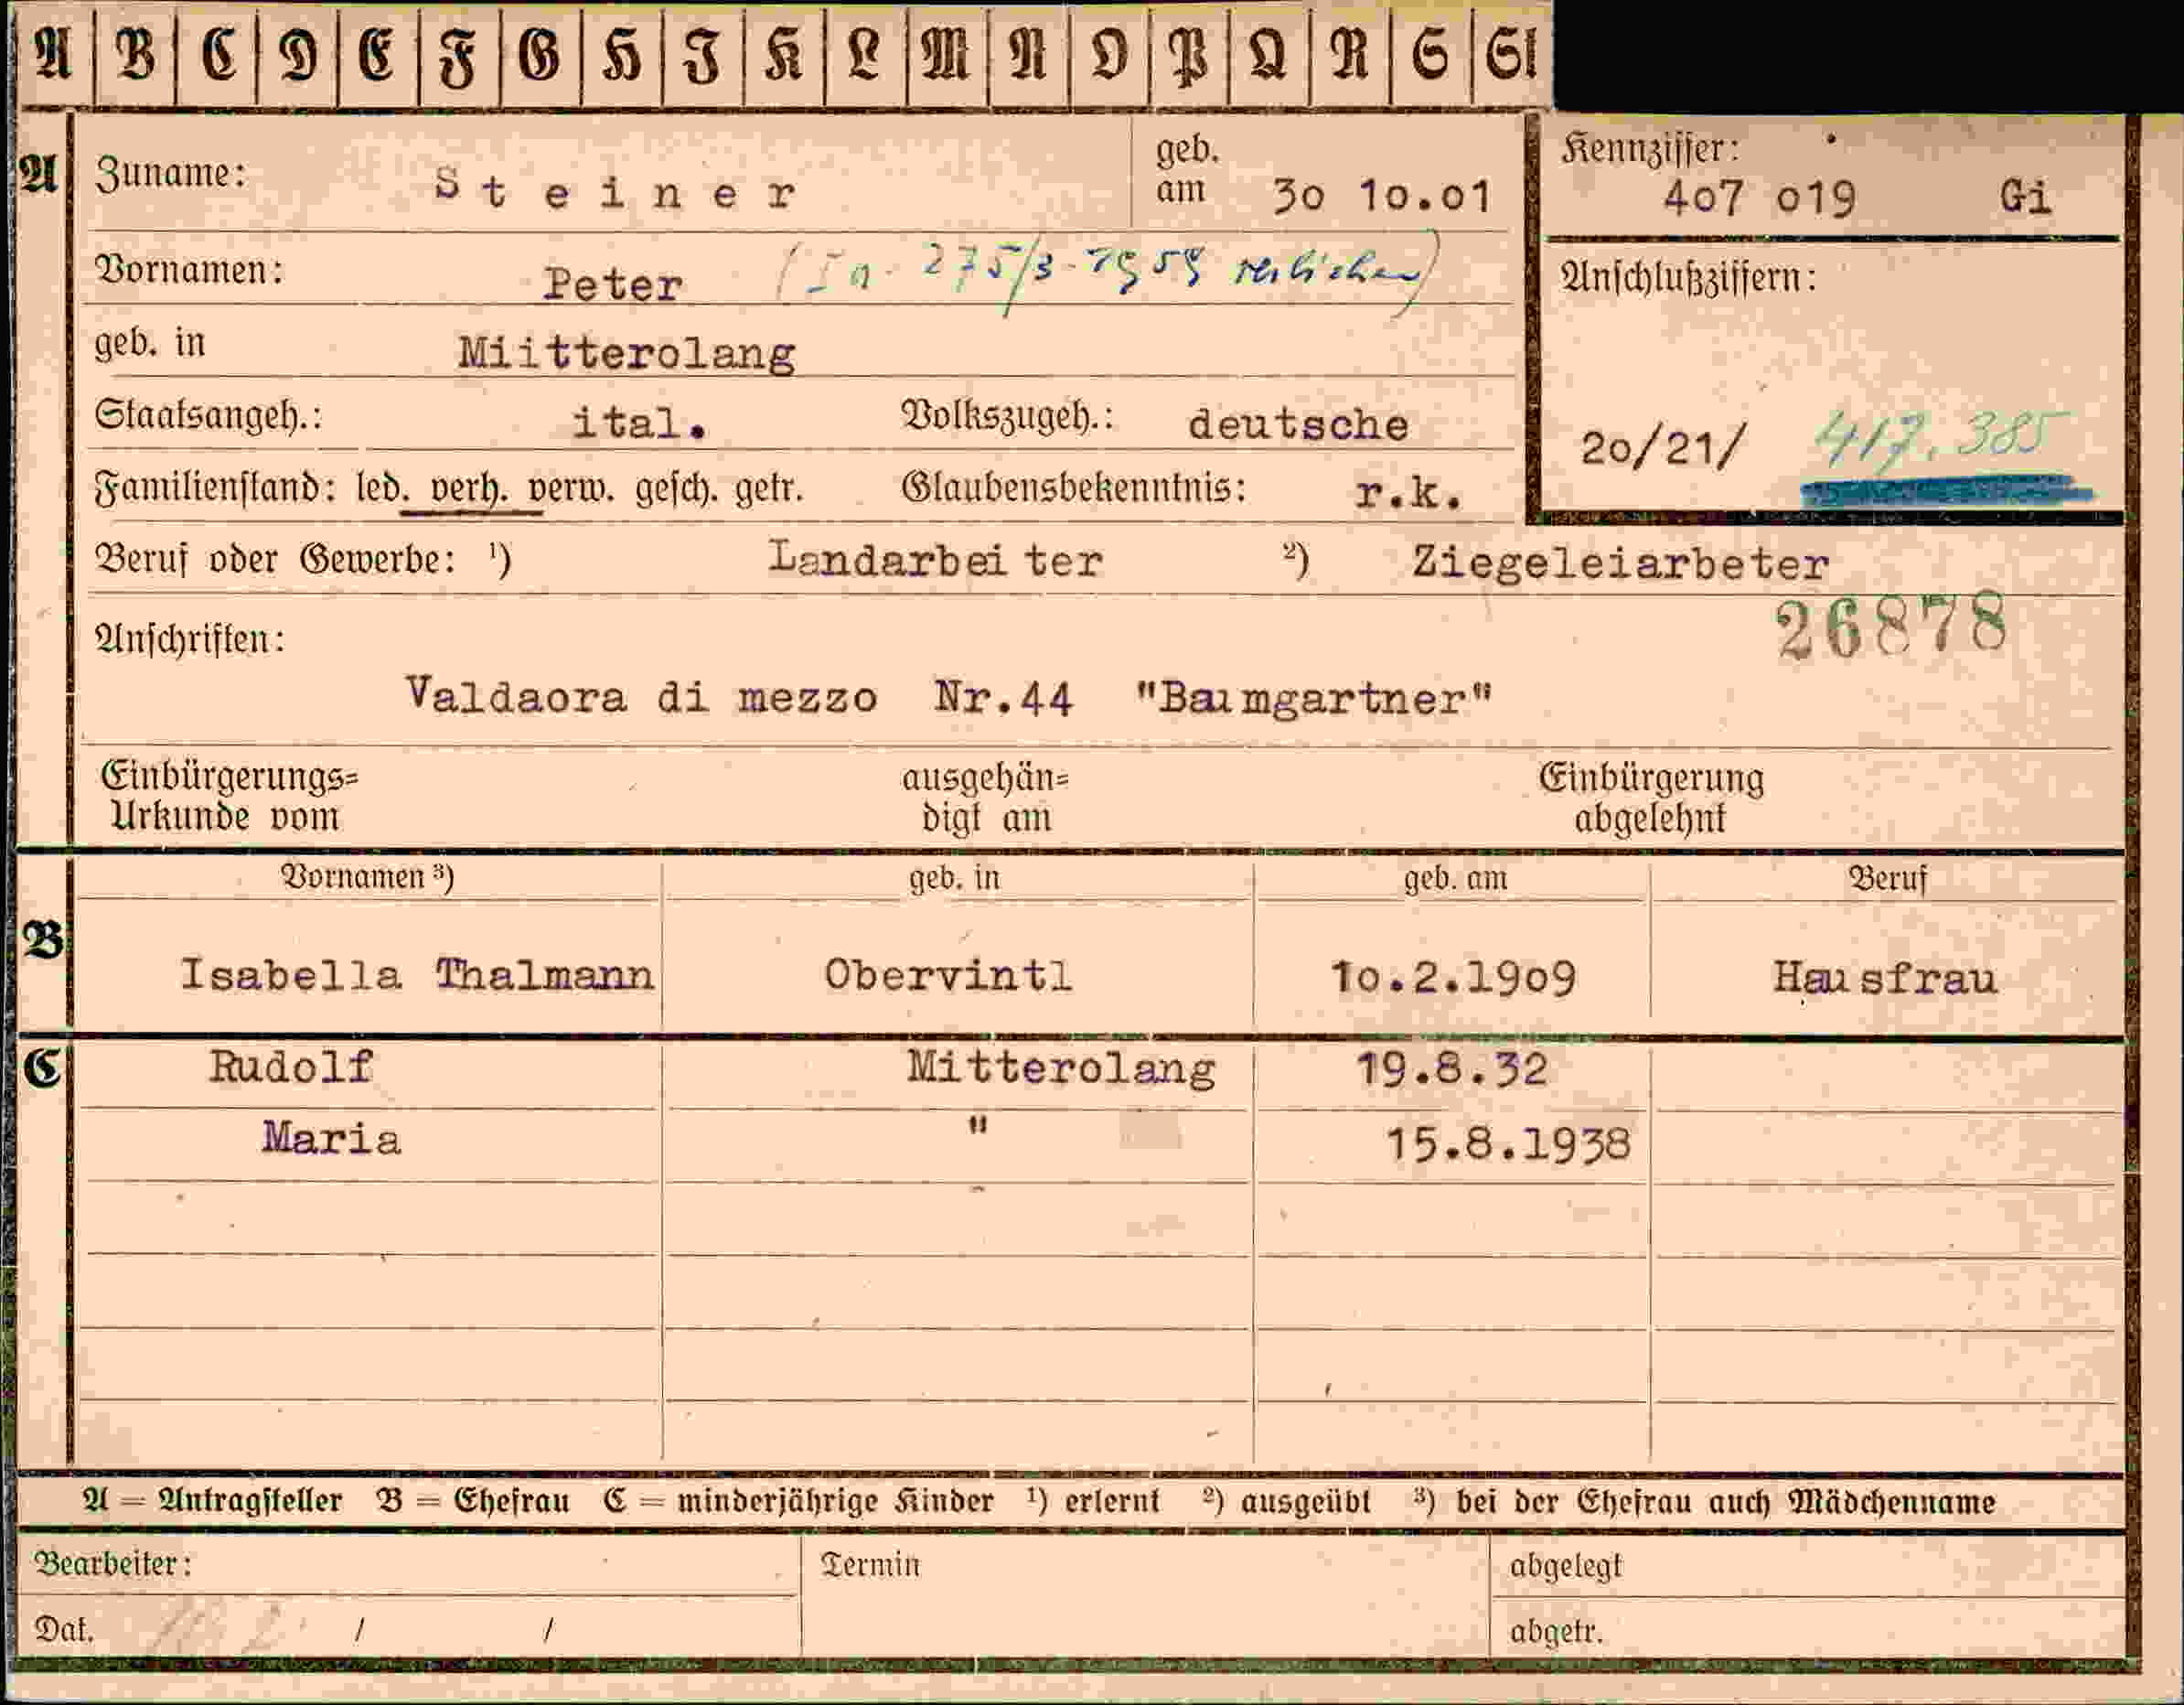 A B C D E F G H J K L M N O P Q R S St
A Zuname: Steiner geb. am 30 10.01
Kennziffer: 407 019 Gi
Vornamen: Peter
Anschlußziffern:
geb. in Miitterolang
Staatsangeh.: ital. Volkszugeh.: deutsche
20/21/ 417.385
Familienstand: led. verh. verw. gesch. getr. Glaubensbekenntnis: r.k.
Beruf oder Gewerbe: ¹) Landarbei ter ²) Ziegeleiarbeter
26878
Anschriften:
Valdaora di mezzo Nr.44 "Baumgartner"
Einbürgerungs= ausgehän= Einbürgerung
Urkunde vom digt am abgelehnt
Vornamen ³) geb. in geb. am Beruf
B Isabella Thalmann Obervintl 10.2.1909 Hausfrau
C Rudolf Mitterolang 19.8.32
Maria " 15.8.1938
A = Antragsteller B = Ehefrau C = minderjährige Kinder ¹) erlernt ²) ausgeübt ³) bei der Ehefrau auch Mädchenname
Bearbeiter: Termin abgelegt
Dat. / / abgetr.